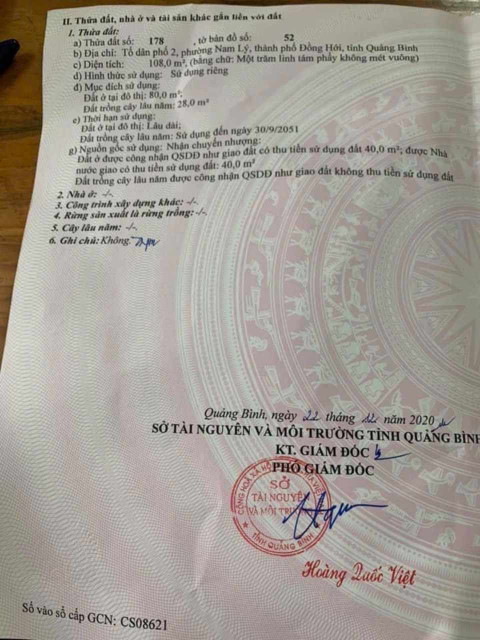 II. Thửa đất, nhà ở và tài sản khác gắn liền với đất
1. Thửa đất:
a) Thửa đất số: 178 , tờ bản đồ số: 52
b) Địa chỉ: Tổ dân phố 2, phường Nam Lý, thành phố Đồng Hới, tỉnh Quảng Bình
c) Diện tích: 108,0 m², (bằng chữ: Một trăm linh tám phẩy không mét vuông)
d) Hình thức sử dụng: Sử dụng riêng
đ) Mục đích sử dụng:
Đất ở tại đô thị: 80,0 m²;
Đất trồng cây lâu năm: 28,0 m²
e) Thời hạn sử dụng:
Đất ở tại đô thị: Lâu dài;
Đất trồng cây lâu năm: Sử dụng đến ngày 30/9/2051
g) Nguồn gốc sử dụng: Nhận chuyển nhượng:
Đất ở được công nhận QSDĐ như giao đất có thu tiền sử dụng đất 40,0 m²; được Nhà
nước giao có thu tiền sử dụng đất: 40,0 m²
Đất trồng cây lâu năm được công nhận QSDĐ như giao đất không thu tiền sử dụng đất
2. Nhà ở: -/-.
3. Công trình xây dựng khác: -/-.
4. Rừng sản xuất là rừng trồng: -/-.
5. Cây lâu năm: -/-.
6. Ghi chú: Không.
Quảng Bình, ngày 22 tháng 12 năm 2020
SỞ TÀI NGUYÊN VÀ MÔI TRƯỜNG TỈNH QUẢNG BÌNH
KT. GIÁM ĐỐC
PHÓ GIÁM ĐỐC
SỞ
TÀI NGUYÊN
VÀ MÔI TRƯỜNG
TỈNH QUẢNG BÌNH
Hoàng Quốc Việt
Số vào sổ cấp GCN: CS08621